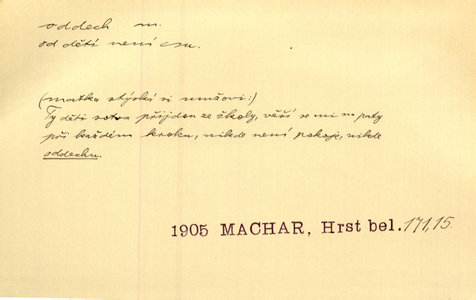 oddech m.
od dětí není csu.
(matka stýská si mužovi:)
Ty děti sotva přijdou ze školy, věší se mi na paty
při každém kroku, nikde není pokoje, nikde
oddechu.
1905 MACHAR, Hrst bel. 171,15.